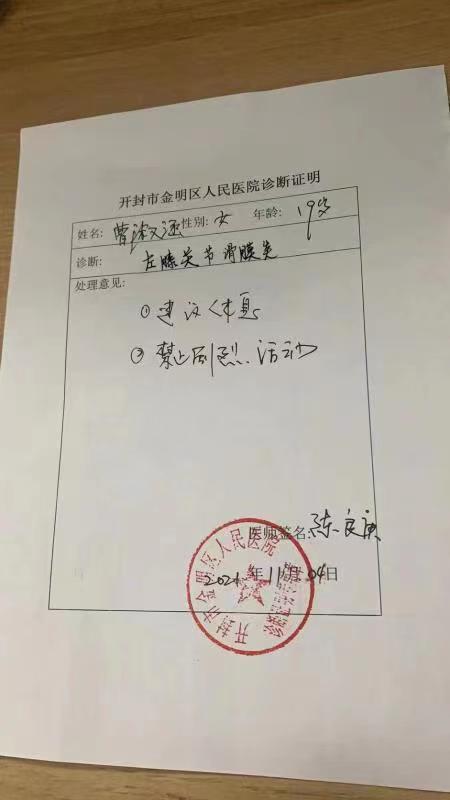 开封市金明区人民医院诊断证明
姓名: 曾淑涵 性别: 女 年龄: 19岁
诊断: 左膝关节滑膜炎
处理意见:
①建议休息
②禁止剧烈活动
医师签名: 陈良
2021年11月04日
开封市金明区人民医院